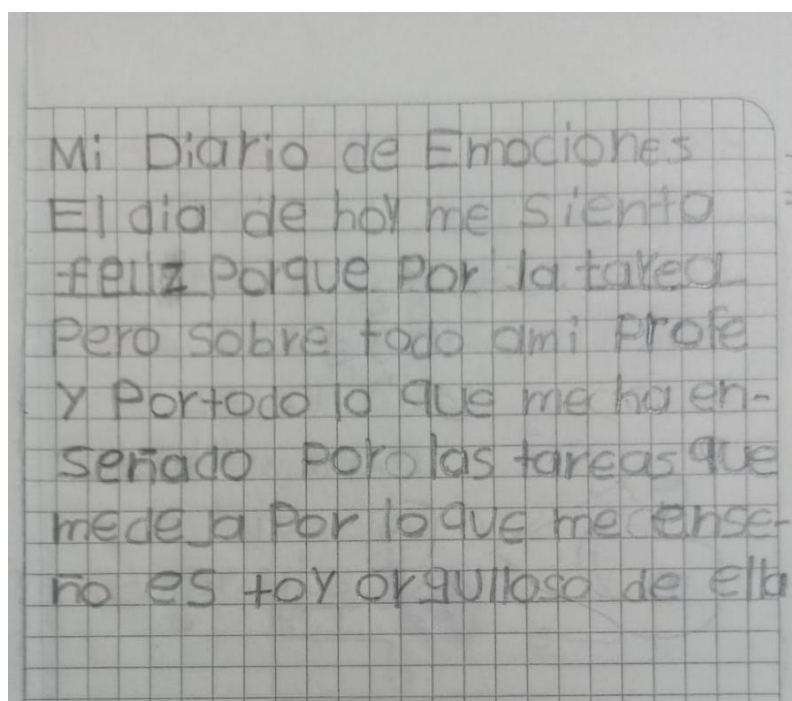 Mi Diario de Emociones
El dia de hoy me siento
feliz porque por la tarea
pero sobre todo ami profe
y portodo lo que me ha en-
señado por las tareas que
mede ja por lo que me ense-
ño es toy orgullosa de ella